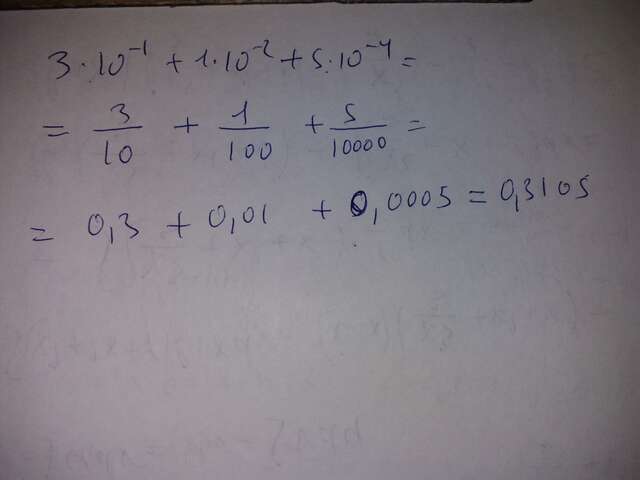 3·10⁻¹ + 1·10⁻² + 5·10⁻⁴ =
= 3/10 + 1/100 + 5/10000 =
= 0,3 + 0,01 + 0,0005 = 0,3105